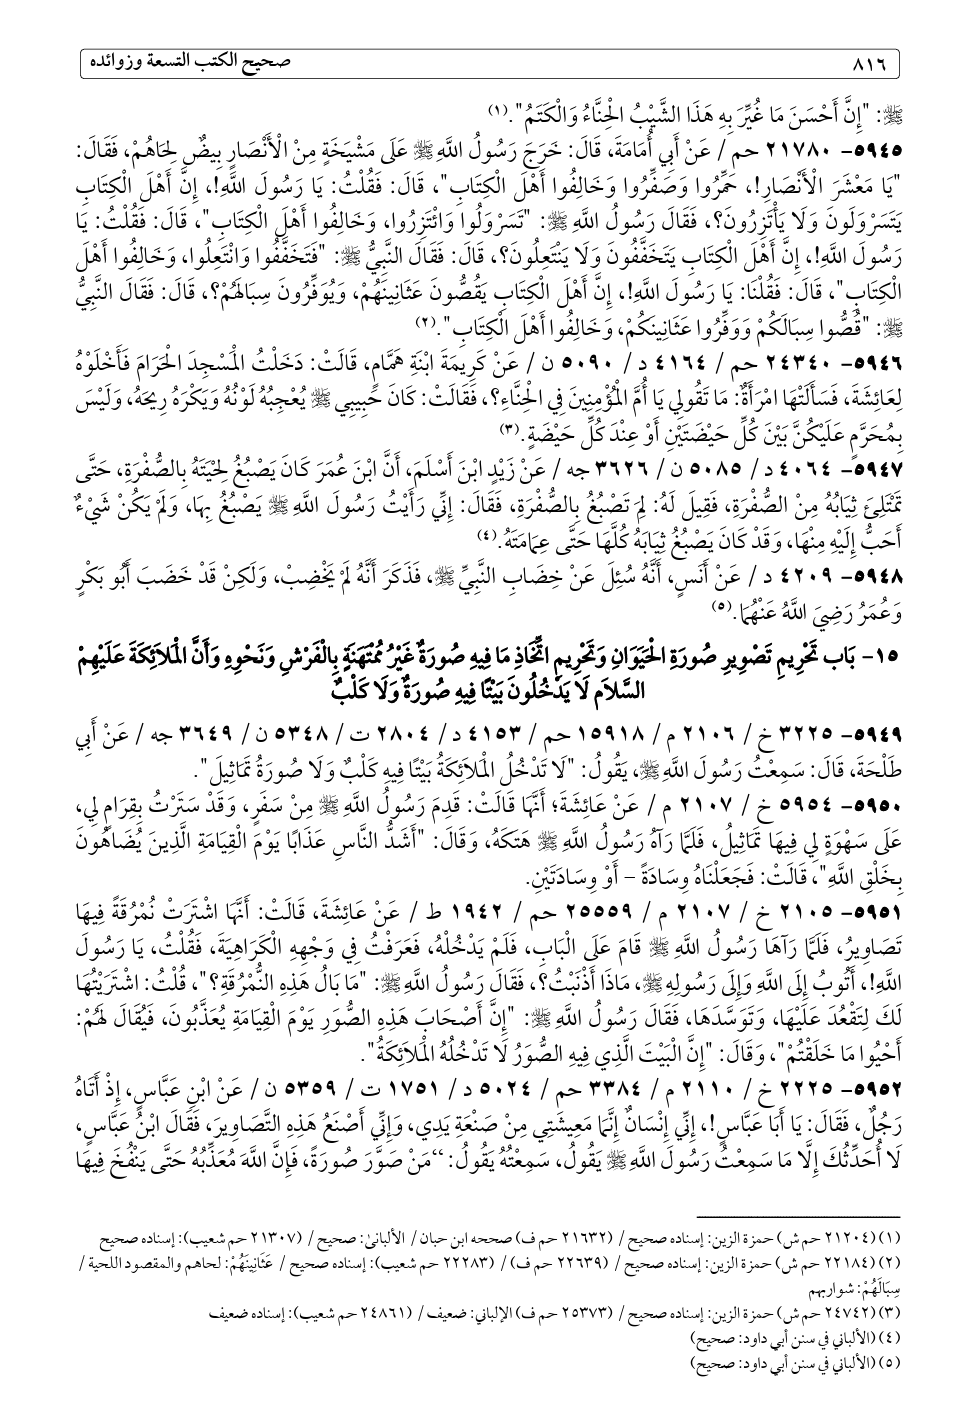 ٨١٦ صحيح الكتب التسعة وزوائده
ﷺ: "إِنَّ أَحْسَنَ مَا غُيِّرَ بِهِ هَذَا الشَّيْبُ الْحِنَّاءُ وَالْكَتَمُ".(١)
٥٩٤٥- ٢١٧٨٠ حم / عَنْ أَبِي أُمَامَةَ، قَالَ: خَرَجَ رَسُولُ اللَّهِ ﷺ عَلَى مَشْيَخَةٍ مِنْ الْأَنْصَارِ بِيضٌ لِحَاهُمْ، فَقَالَ:
"يَا مَعْشَرَ الْأَنْصَارِ!، حَمِّرُوا وَصَفِّرُوا وَخَالِفُوا أَهْلَ الْكِتَابِ"، قَالَ: فَقُلْتُ: يَا رَسُولَ اللَّهِ!، إِنَّ أَهْلَ الْكِتَابِ
يَتَسَرْوَلُونَ وَلَا يَأْتَزِرُونَ؟، فَقَالَ رَسُولُ اللَّهِ ﷺ: "تَسَرْوَلُوا وَائْتَزِرُوا، وَخَالِفُوا أَهْلَ الْكِتَابِ"، قَالَ: فَقُلْتُ: يَا
رَسُولَ اللَّهِ!، إِنَّ أَهْلَ الْكِتَابِ يَتَخَفَّفُونَ وَلَا يَنْتَعِلُونَ؟، قَالَ: فَقَالَ النَّبِيُّ ﷺ: "فَتَخَفَّفُوا وَانْتَعِلُوا، وَخَالِفُوا أَهْلَ
الْكِتَابِ"، قَالَ: فَقُلْنَا: يَا رَسُولَ اللَّهِ!، إِنَّ أَهْلَ الْكِتَابِ يَقُصُّونَ عَثَانِينَهُمْ، وَيُوَفِّرُونَ سِبَالَهُمْ؟، قَالَ: فَقَالَ النَّبِيُّ
ﷺ: "قُصُّوا سِبَالَكُمْ وَوَفِّرُوا عَثَانِينَكُمْ، وَخَالِفُوا أَهْلَ الْكِتَابِ".(٢)
٥٩٤٦- ٢٤٣٤٠ حم / ٤١٦٤ د / ٥٠٩٠ ن / عَنْ كَرِيمَةَ ابْنَةِ هَمَّامٍ، قَالَتْ: دَخَلْتُ الْمَسْجِدَ الْحَرَامَ فَأَخْلَوْهُ
لِعَائِشَةَ، فَسَأَلَتْهَا امْرَأَةٌ: مَا تَقُولِي يَا أُمَّ الْمُؤْمِنِينَ فِي الْحِنَّاءِ؟، فَقَالَتْ: كَانَ حَبِيبِي ﷺ يُعْجِبُهُ لَوْنُهُ وَيَكْرَهُ رِيحَهُ، وَلَيْسَ
بِمُحَرَّمٍ عَلَيْكُنَّ بَيْنَ كُلِّ حَيْضَتَيْنِ أَوْ عِنْدَ كُلِّ حَيْضَةٍ.(٣)
٥٩٤٧- ٤٠٦٤ د / ٥٠٨٥ ن / ٣٦٢٦ جه / عَنْ زَيْدِ ابْنَ أَسْلَمَ، أَنَّ ابْنَ عُمَرَ كَانَ يَصْبُغُ لِحْيَتَهُ بِالصُّفْرَةِ، حَتَّى
تَمْتَلِئَ ثِيَابُهُ مِنْ الصُّفْرَةِ، فَقِيلَ لَهُ: لِمَ تَصْبُغُ بِالصُّفْرَةِ، فَقَالَ: إِنِّي رَأَيْتُ رَسُولَ اللَّهِ ﷺ يَصْبُغُ بِهَا، وَلَمْ يَكُنْ شَيْءٌ
أَحَبُّ إِلَيْهِ مِنْهَا، وَقَدْ كَانَ يَصْبُغُ ثِيَابَهُ كُلَّهَا حَتَّى عِمَامَتَهُ.(٤)
٥٩٤٨- ٤٢٠٩ د / عَنْ أَنَسٍ، أَنَّهُ سُئِلَ عَنْ خِضَابِ النَّبِيِّ ﷺ، فَذَكَرَ أَنَّهُ لَمْ يَخْضِبْ، وَلَكِنْ قَدْ خَضَبَ أَبُو بَكْرٍ
وَعُمَرُ رَضِيَ اللَّهُ عَنْهُمَا.(٥)
١٥- بَاب تَحْرِيمِ تَصْوِيرِ صُورَةِ الْحَيَوَانِ وَتَحْرِيمِ اتِّخَاذِ مَا فِيهِ صُورَةٌ غَيْرُ مُمْتَهَنَةٍ بِالْفَرْشِ وَنَحْوِهِ وَأَنَّ الْمَلَائِكَةَ عَلَيْهِمْ
السَّلَام لَا يَدْخُلُونَ بَيْتًا فِيهِ صُورَةٌ وَلَا كَلْبٌ
٥٩٤٩- ٣٢٢٥ خ / ٢١٠٦ م / ١٥٩١٨ حم / ٤١٥٣ د / ٢٨٠٤ ت / ٥٣٤٨ ن / ٣٦٤٩ جه / عَنْ أَبِي
طَلْحَةَ، قَالَ: سَمِعْتُ رَسُولَ اللَّهِ ﷺ، يَقُولُ: "لَا تَدْخُلُ الْمَلَائِكَةُ بَيْتًا فِيهِ كَلْبٌ وَلَا صُورَةُ تَمَاثِيلَ".
٥٩٥٠- ٥٩٥٤ خ / ٢١٠٧ م / عَنْ عَائِشَةَ؛ أَنَّهَا قَالَتْ: قَدِمَ رَسُولُ اللَّهِ ﷺ مِنْ سَفَرٍ، وَقَدْ سَتَرْتُ بِقِرَامٍ لِي،
عَلَى سَهْوَةٍ لِي فِيهَا تَمَاثِيلُ، فَلَمَّا رَآهُ رَسُولُ اللَّهِ ﷺ هَتَكَهُ، وَقَالَ: "أَشَدُّ النَّاسِ عَذَابًا يَوْمَ الْقِيَامَةِ الَّذِينَ يُضَاهُونَ
بِخَلْقِ اللَّهِ"، قَالَتْ: فَجَعَلْنَاهُ وِسَادَةً – أَوْ وِسَادَتَيْنِ.
٥٩٥١- ٢١٠٥ خ / ٢١٠٧ م / ٢٥٥٥٩ حم / ١٩٤٢ ط / عَنْ عَائِشَةَ، قَالَتْ: أَنَّهَا اشْتَرَتْ نُمْرُقَةً فِيهَا
تَصَاوِيرُ، فَلَمَّا رَآهَا رَسُولُ اللَّهِ ﷺ قَامَ عَلَى الْبَابِ، فَلَمْ يَدْخُلْهُ، فَعَرَفْتُ فِي وَجْهِهِ الْكَرَاهِيَةَ، فَقُلْتُ، يَا رَسُولَ
اللَّهِ!، أَتُوبُ إِلَى اللَّهِ وَإِلَى رَسُولِهِ ﷺ، مَاذَا أَذْنَبْتُ؟، فَقَالَ رَسُولُ اللَّهِ ﷺ: "مَا بَالُ هَذِهِ النُّمْرُقَةِ؟"، قُلْتُ: اشْتَرَيْتُهَا
لَكَ لِتَقْعُدَ عَلَيْهَا، وَتَوَسَّدَهَا، فَقَالَ رَسُولُ اللَّهِ ﷺ: "إِنَّ أَصْحَابَ هَذِهِ الصُّوَرِ يَوْمَ الْقِيَامَةِ يُعَذَّبُونَ، فَيُقَالُ لَهُمْ:
أَحْيُوا مَا خَلَقْتُمْ"، وَقَالَ: "إِنَّ الْبَيْتَ الَّذِي فِيهِ الصُّوَرُ لَا تَدْخُلُهُ الْمَلَائِكَةُ".
٥٩٥٢- ٢٢٢٥ خ / ٢١١٠ م / ٣٣٨٤ حم / ٥٠٢٤ د / ١٧٥١ ت / ٥٣٥٩ ن / عَنْ ابْنِ عَبَّاسٍ، إِذْ أَتَاهُ
رَجُلٌ، فَقَالَ: يَا أَبَا عَبَّاسٍ!، إِنِّي إِنْسَانٌ إِنَّمَا مَعِيشَتِي مِنْ صَنْعَةِ يَدِي، وَإِنِّي أَصْنَعُ هَذِهِ التَّصَاوِيرَ، فَقَالَ ابْنُ عَبَّاسٍ،
لَا أُحَدِّثُكَ إِلَّا مَا سَمِعْتُ رَسُولَ اللَّهِ ﷺ يَقُولُ، سَمِعْتُهُ يَقُولُ: "مَنْ صَوَّرَ صُورَةً، فَإِنَّ اللَّهَ مُعَذِّبُهُ حَتَّى يَنْفُخَ فِيهَا
(١) (٢١٢٠٤ حم ش) حمزة الزين: إسناده صحيح / (٢١٦٣٢ حم ف) صححه ابن حبان / الألبانى: صحيح / (٢١٣٠٧ حم شعيب): إسناده صحيح
(٢) (٢٢١٨٤ حم ش) حمزة الزين: إسناده صحيح / (٢٢٦٣٩ حم ف) / (٢٢٢٨٣ حم شعيب): إسناده صحيح / عَثَانِينَهُمْ: لحاهم والمقصود اللحية /
سِبَالَهُمْ: شواربهم
(٣) (٢٤٧٤٢ حم ش) حمزة الزين: إسناده صحيح / (٢٥٣٧٣ حم ف) الإلباني: ضعيف / (٢٤٨٦١ حم شعيب): إسناده ضعيف
(٤) (الألباني في سنن أبي داود: صحيح)
(٥) (الألباني في سنن أبي داود: صحيح)